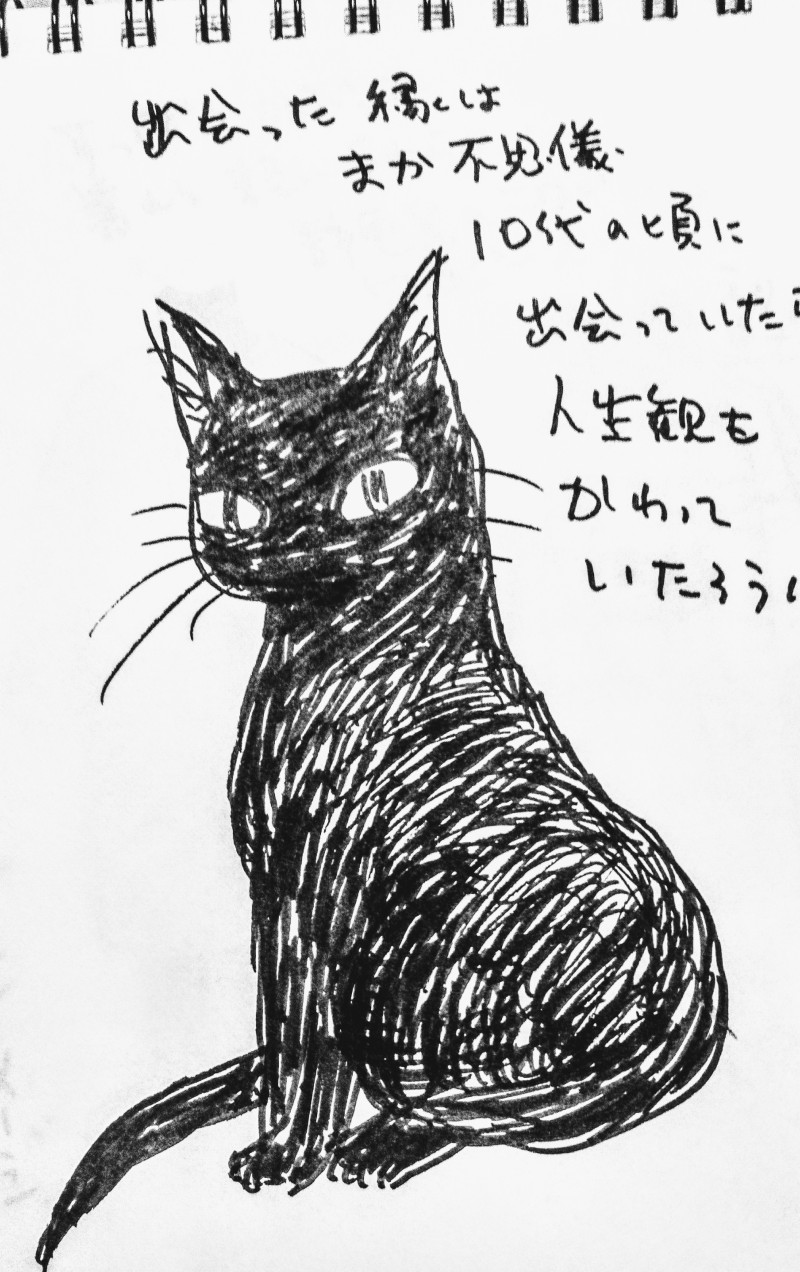 出会った 縁とは
まか不思儀
10代の頃に
出会っていた
人生観も
かわって
いたろう